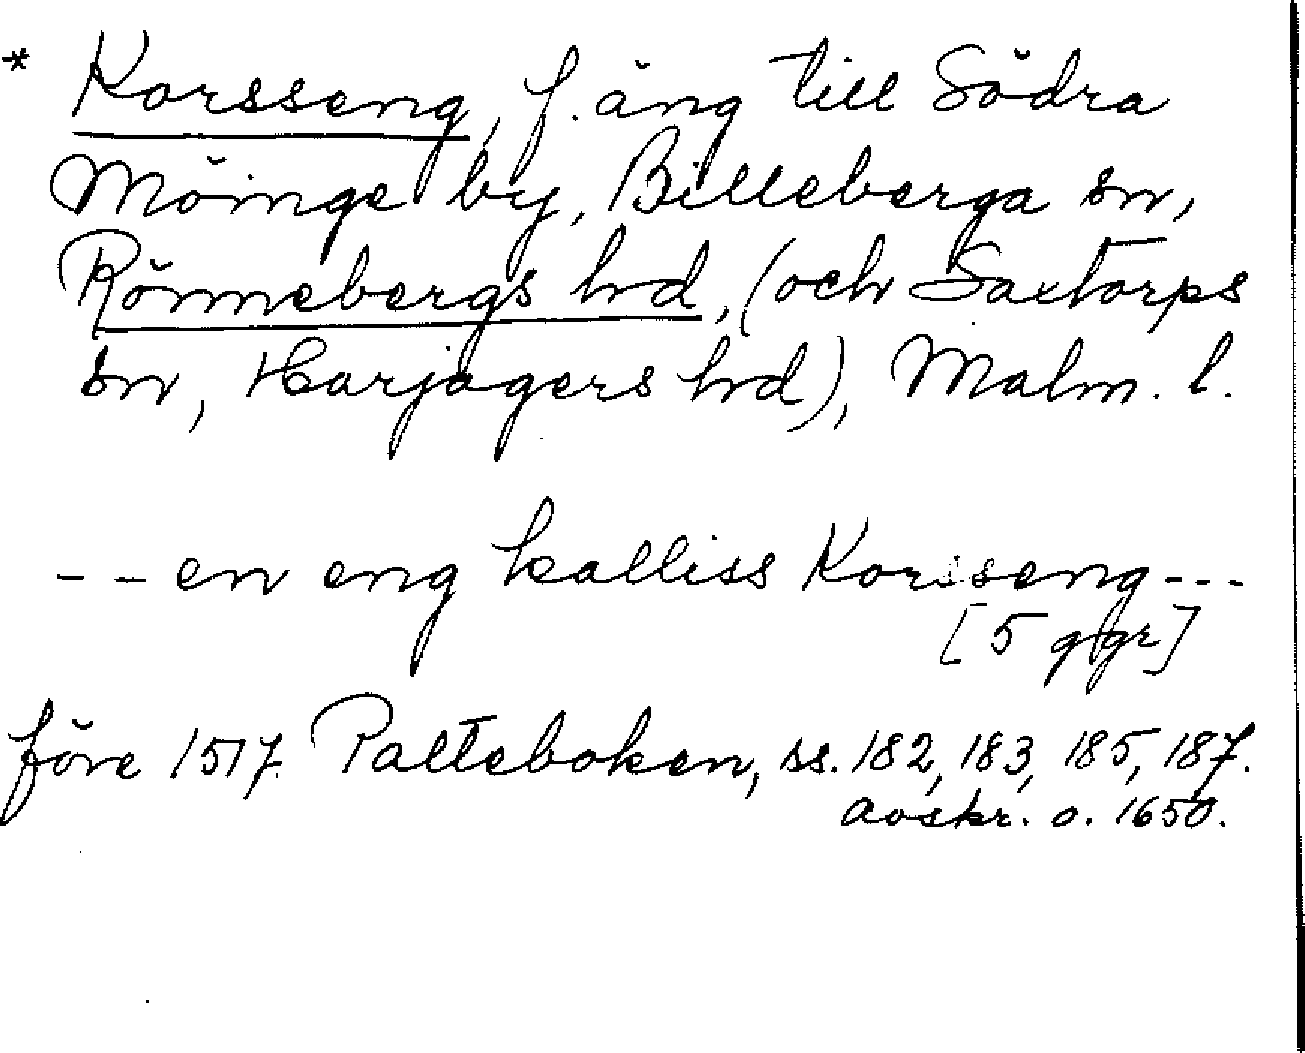 * Korsseng, f. äng till Södra
Möinge by, Billeberga sn,
Rönnebergs hd, (och Saxtorps
sn, Harjagers hd), Malm. l.
-- en eng kalliss Korsseng ---
[5 ggr]
före 1517. Palteboken, ss. 182, 183, 185, 187.
avskr. o. 1650.